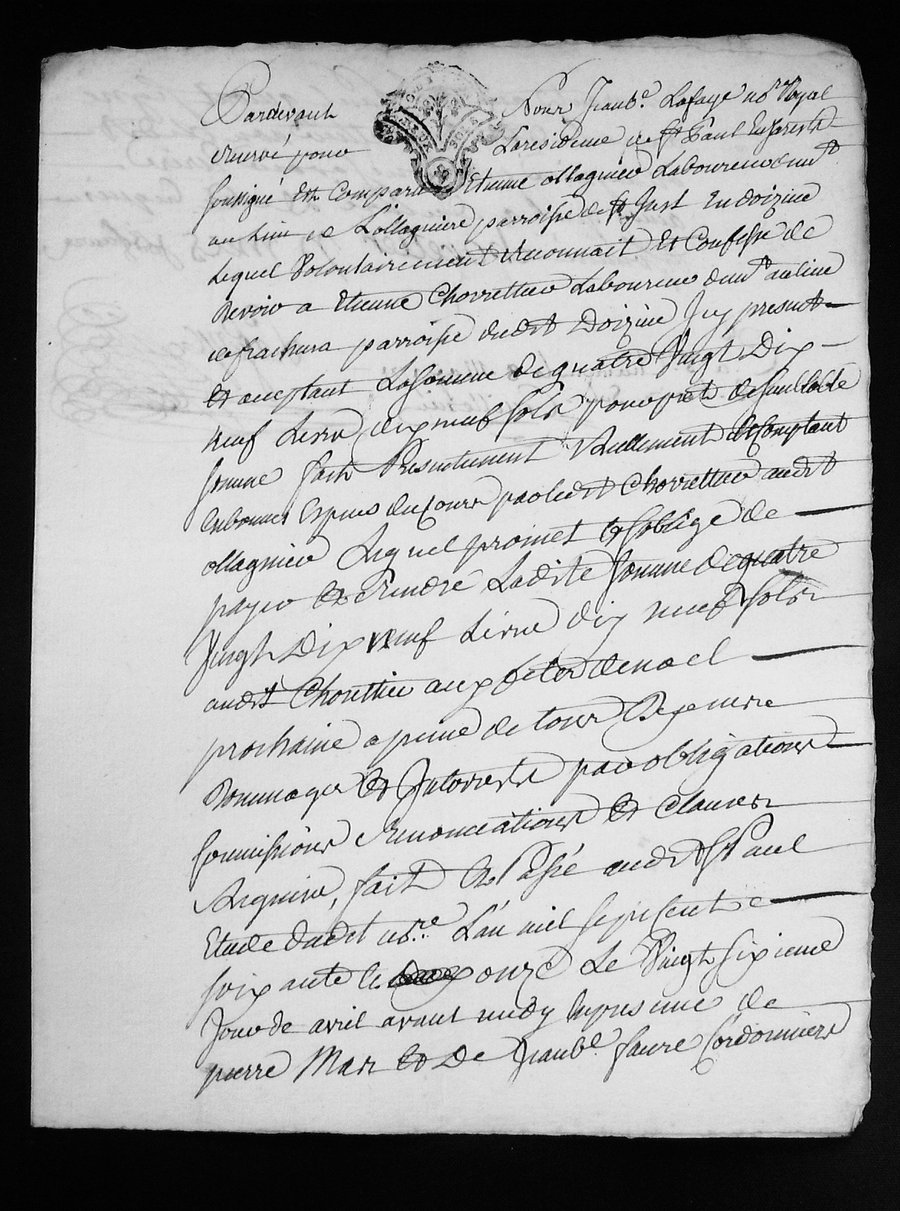 Pardevant Nous Jeanb.e Lafaye no.re Royal
reservé pour La residence de St Paul En Jarests
soussigné Est Comparu Etienne ollagnier Laboureur demt
au Lieu de L'ollagniere parroisse de St Just En doizine
Lequel Volontairement reconnait Et Confesse de
devoir a Etienne Chorrettier Laboureur demt au lieu
de parroisse dudit Doizine Icy present
et acceptant La somme de quatre Vingt Dix
neuf Livre dix neuf sols pour pret de semblable
somme fait Presentement reellement et Comptant
En bonnes Espece du Cours par ledit Chorrettier audit
ollagnier Lequel promet et soblige de
payer et rendre Ladite somme de quatre
Vingt Dix neuf Livre dix neuf sols
audit Chorettier aux fetes de noel
prochaine a peine de tous Depens
Dommages et Interrests par obligations
soumissions renonciations et clauses
requises, fait et Passé audit St Paul
Etude dudit no.re L'an mil sept cent
soixante et onze Le Vingt sixieme
Jour de avril avant midy En presence de
pierre Mas et De Jeanb.e faure Cordonniers